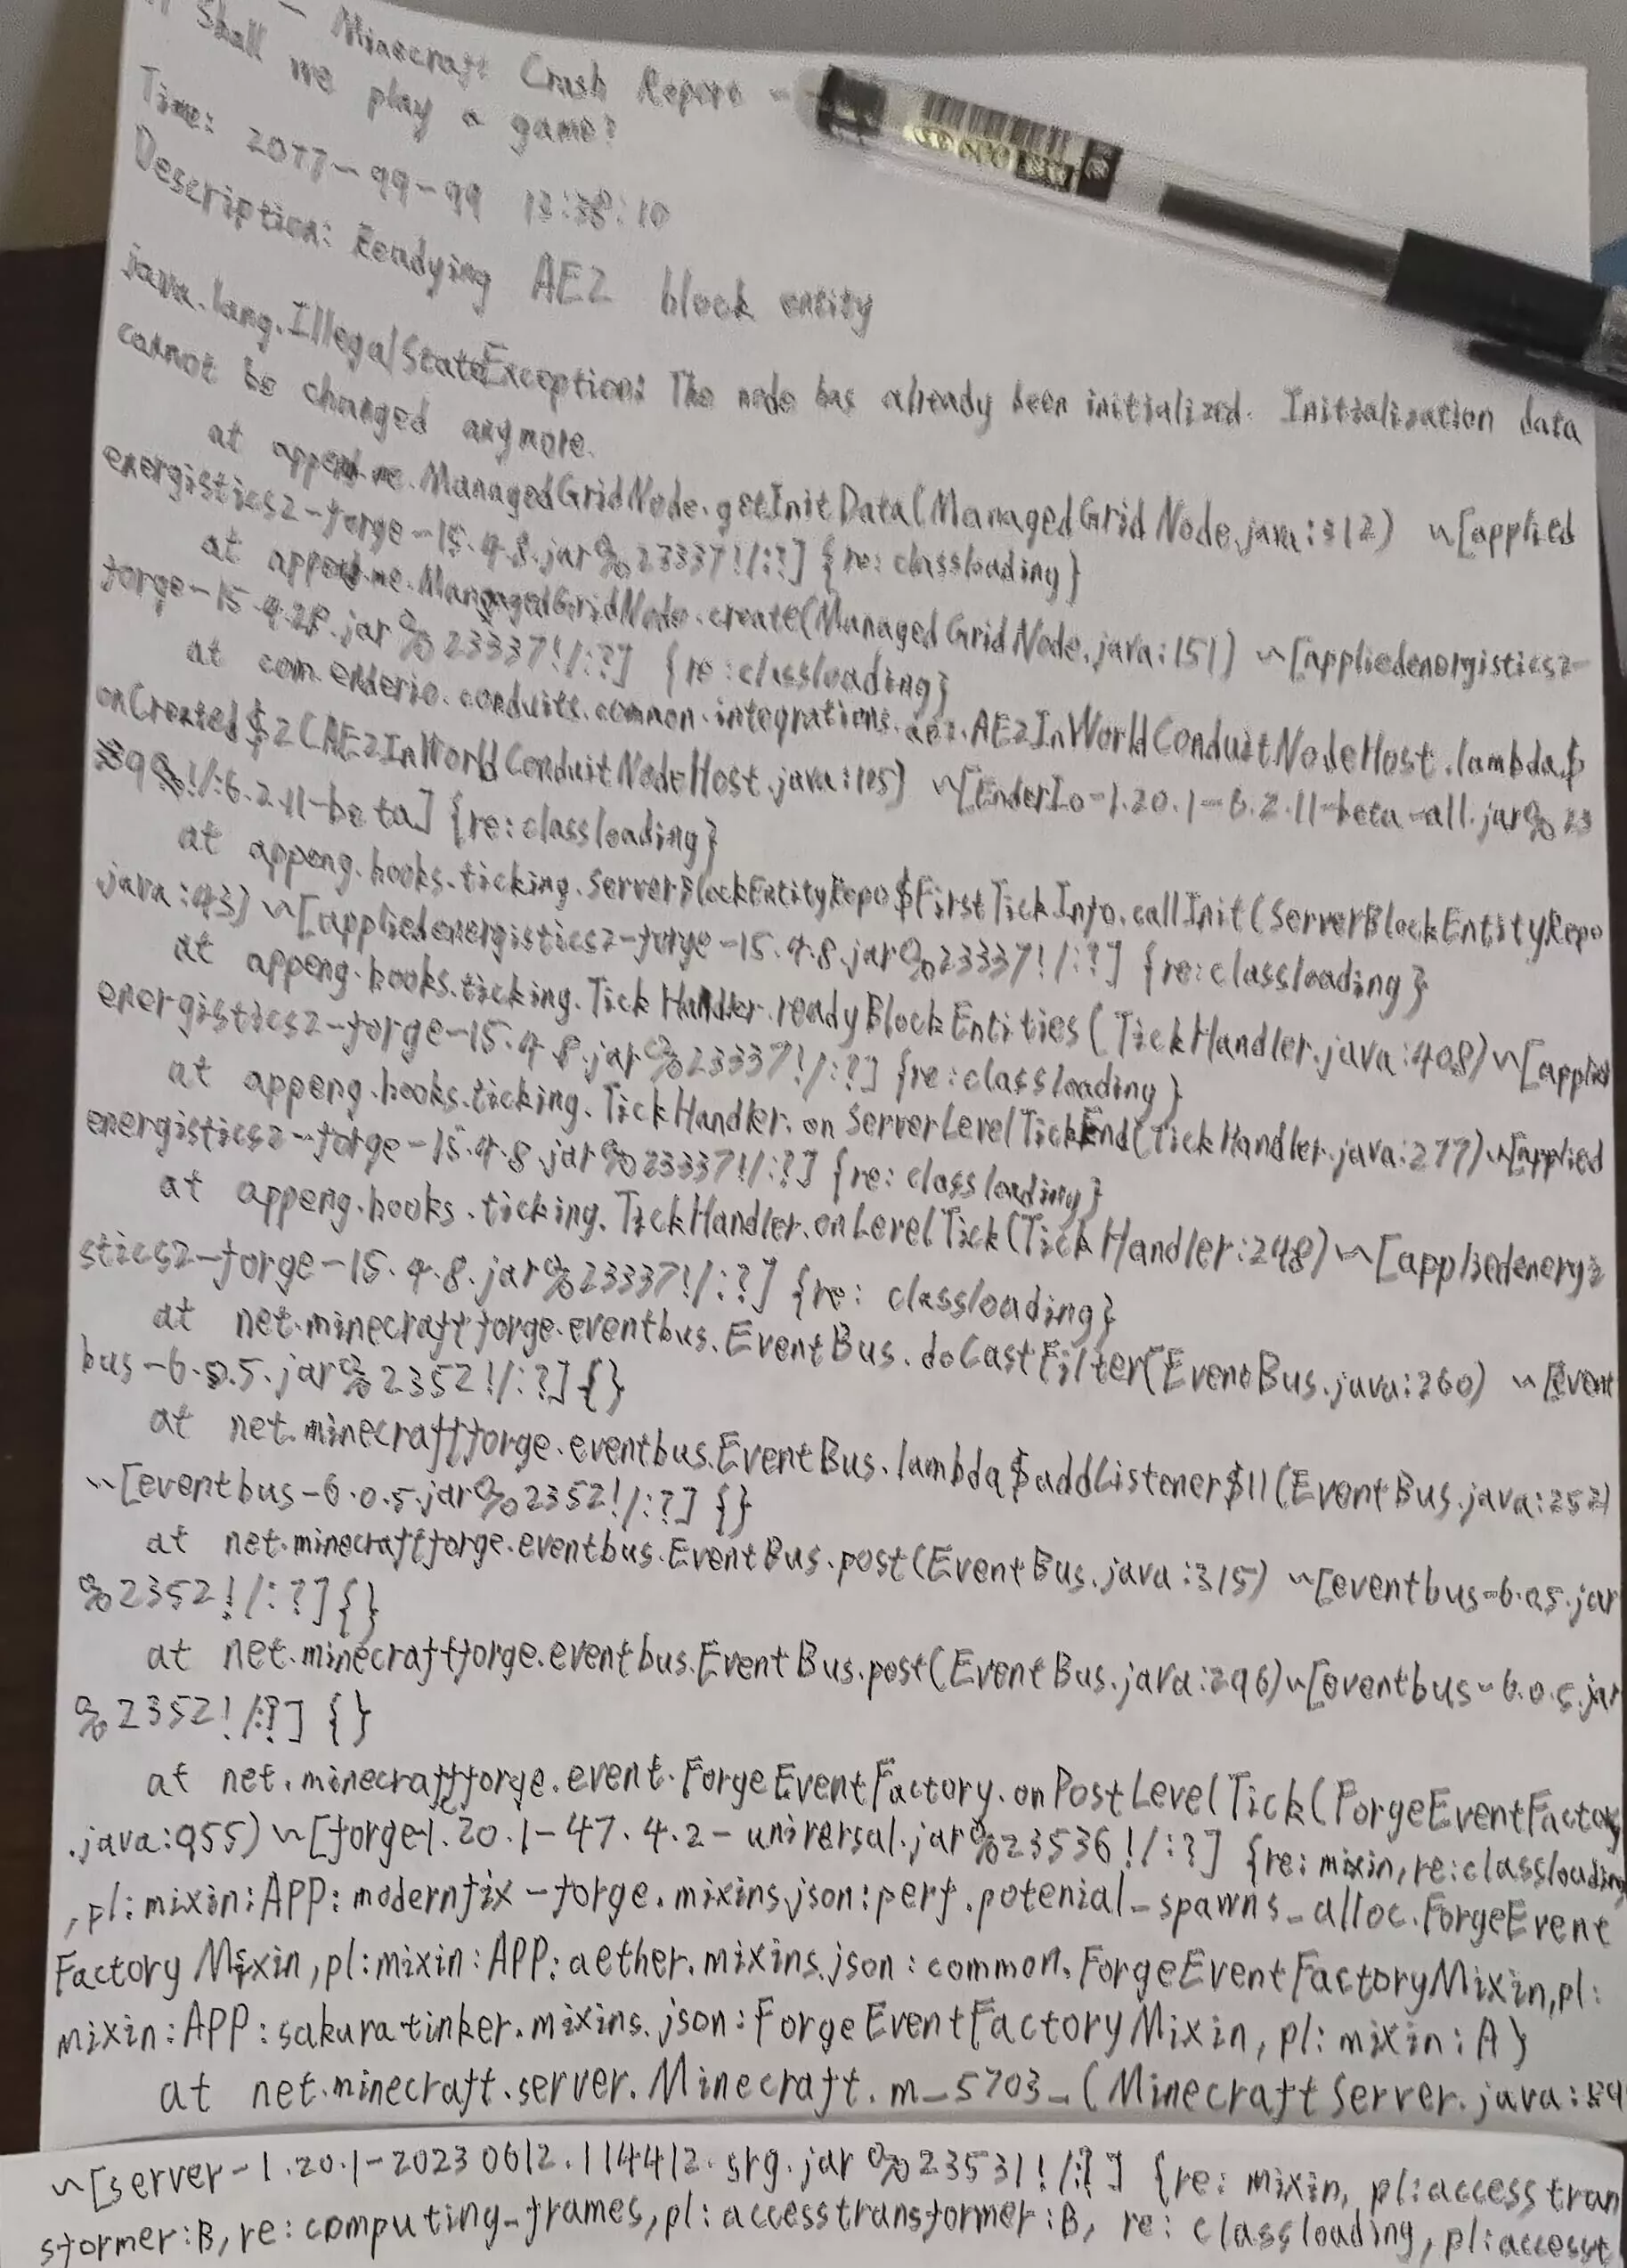 -- Minecraft Crash Report -
// Shall we play a game?
Time: 2077-99-99 13:38:10
Description: Readying AE2 block entity
java.lang.IllegalStateException: The node has already been initialized. Initialization data
cannot be changed anymore.
at appeng.me.ManagedGridNode.getInitData(ManagedGridNode.java:312) ~[applied
energistics2-forge-15.4.8.jar%23337!/:?] {re: classloading}
at appeng.me.ManagedGridNode.create(ManagedGridNode.java:151) ~[appliedenergistics2-
forge-15.4.8.jar%23337!/:?] {re:classloading}
at com.enderio.conduits.common.integrations.ae2.AE2InWorldConduitNodeHost.lambda$
onCreated$2(AE2InWorldConduitNodeHost.java:105) ~[EnderIo-1.20.1-6.2.11-beta-all.jar%23
399!/:6.2.11-beta] {re:classloading}
at appeng.hooks.ticking.ServerBlockEntityRepo$FirstTickInfo.callInit(ServerBlockEntityRepo
java:43) ~[appliedenergistics2-forge-15.4.8.jar%23337!/:?] {re:classloading}
at appeng.hooks.ticking.TickHandler.readyBlockEntities(TickHandler.java:408)~[applied
energistics2-forge-15.4.8.jar%23337!/:?] {re:classloading}
at appeng.hooks.ticking.TickHandler.onServerLevelTickEnd(TickHandler.java:277)~[applied
energistics2-forge-15.4.8.jar%23337!/:?] {re: classloading}
at appeng.hooks.ticking.TickHandler.onLevelTick(TickHandler:248)~[appliedenergi
stics2-forge-15.4.8.jar%23337!/:?] {re: classloading}
at net.minecraftforge.eventbus.EventBus.doCastFilter(EventBus.java:260) ~[event
bus-6.0.5.jar%2352!/:?]{}
at net.minecraftforge.eventbus.EventBus.lambda$addListener$11(EventBus.java:252)
~[eventbus-6.0.5.jar%2352!/:?] {}
at net.minecraftforge.eventbus.EventBus.post(EventBus.java:315) ~[eventbus-6.0.5.jar
%2352!/:?]{}
at net.minecraftforge.eventbus.EventBus.post(EventBus.java:296)~[eventbus-6.0.5.jar
%2352!/:?] {}
at net.minecraftforge.event.ForgeEventFactory.onPostLevelTick(ForgeEventFactory
.java:955) ~[forge-1.20.1-47.4.2-universal.jar%23536!/:?] {re:mixin,re:classloading
,pl:mixin:APP:modernfix-forge.mixins.json:perf.potenial_spawns_alloc.ForgeEvent
FactoryMixin,pl:mixin:APP:aether.mixins.json:common.ForgeEventFactoryMixin,pl:
mixin:APP:sakuratinker.mixins.json:ForgeEventFactoryMixin,pl:mixin:A}
at net.minecraft.server.Minecraft.m_5703_(MinecraftServer.java:89
~[server-1.20.1-20230612.114412.srg.jar%23531!/:?] {re: mixin, pl:accesstran
sformer:B,re:computing_frames,pl:accesstransformer:B, re: classloading,pl:accesst